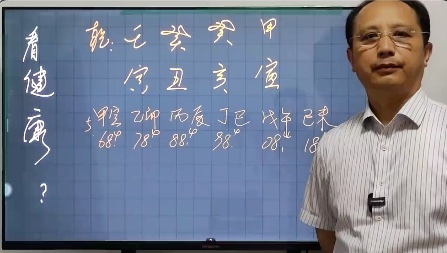 看健康?
乾: 壬 癸 癸 甲
寅 丑 亥 寅
5 甲寅 乙卯 丙辰 丁巳 戊午 己未
68 78 88 98 08 18